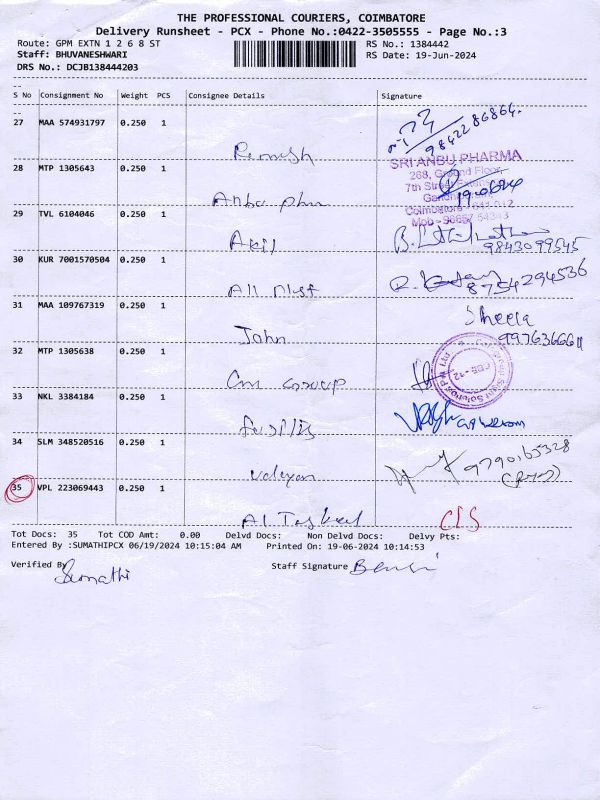 THE PROFESSIONAL COURIERS, COIMBATORE
Delivery Runsheet - PCX - Phone No.:0422-3505555 - Page No.:3
Route: GPM EXTN 1 2 6 8 ST RS No.: 1384442
Staff: BHUVANESHWARI RS Date: 19-Jun-2024
DRS No.: DCJB138444203
S No Consignment No Weight PCS Consignee Details Signature
27 MAA 574931797 0.250 1
9842286864.
Ramesh
SRI ANBU PHARMA
28 MTP 1305643 0.250 1
268, Ground Floor,
7th Street
Anbu phm
Coimbatore - 641 012
Mob - 96657 54343
29 TVL 6104046 0.250 1
Akil
9843099545
30 KUR 7001570504 0.250 1
8754294536
All
31 MAA 109767319 0.250 1
Sheela
John
32 MTP 1305638 0.250 1
Cm Group
33 NKL 3384184 0.250 1
34 SLM 348520516 0.250 1
9790165328
35 VPL 223069443 0.250 1
Al
Tot Docs: 35 Tot COD Amt: 0.00 Delvd Docs: Non Delvd Docs: Delvy Pts:
Entered By :SUMATHIPCX 06/19/2024 10:15:04 AM Printed On: 19-06-2024 10:14:53
Verified By Staff Signature
Sumathi